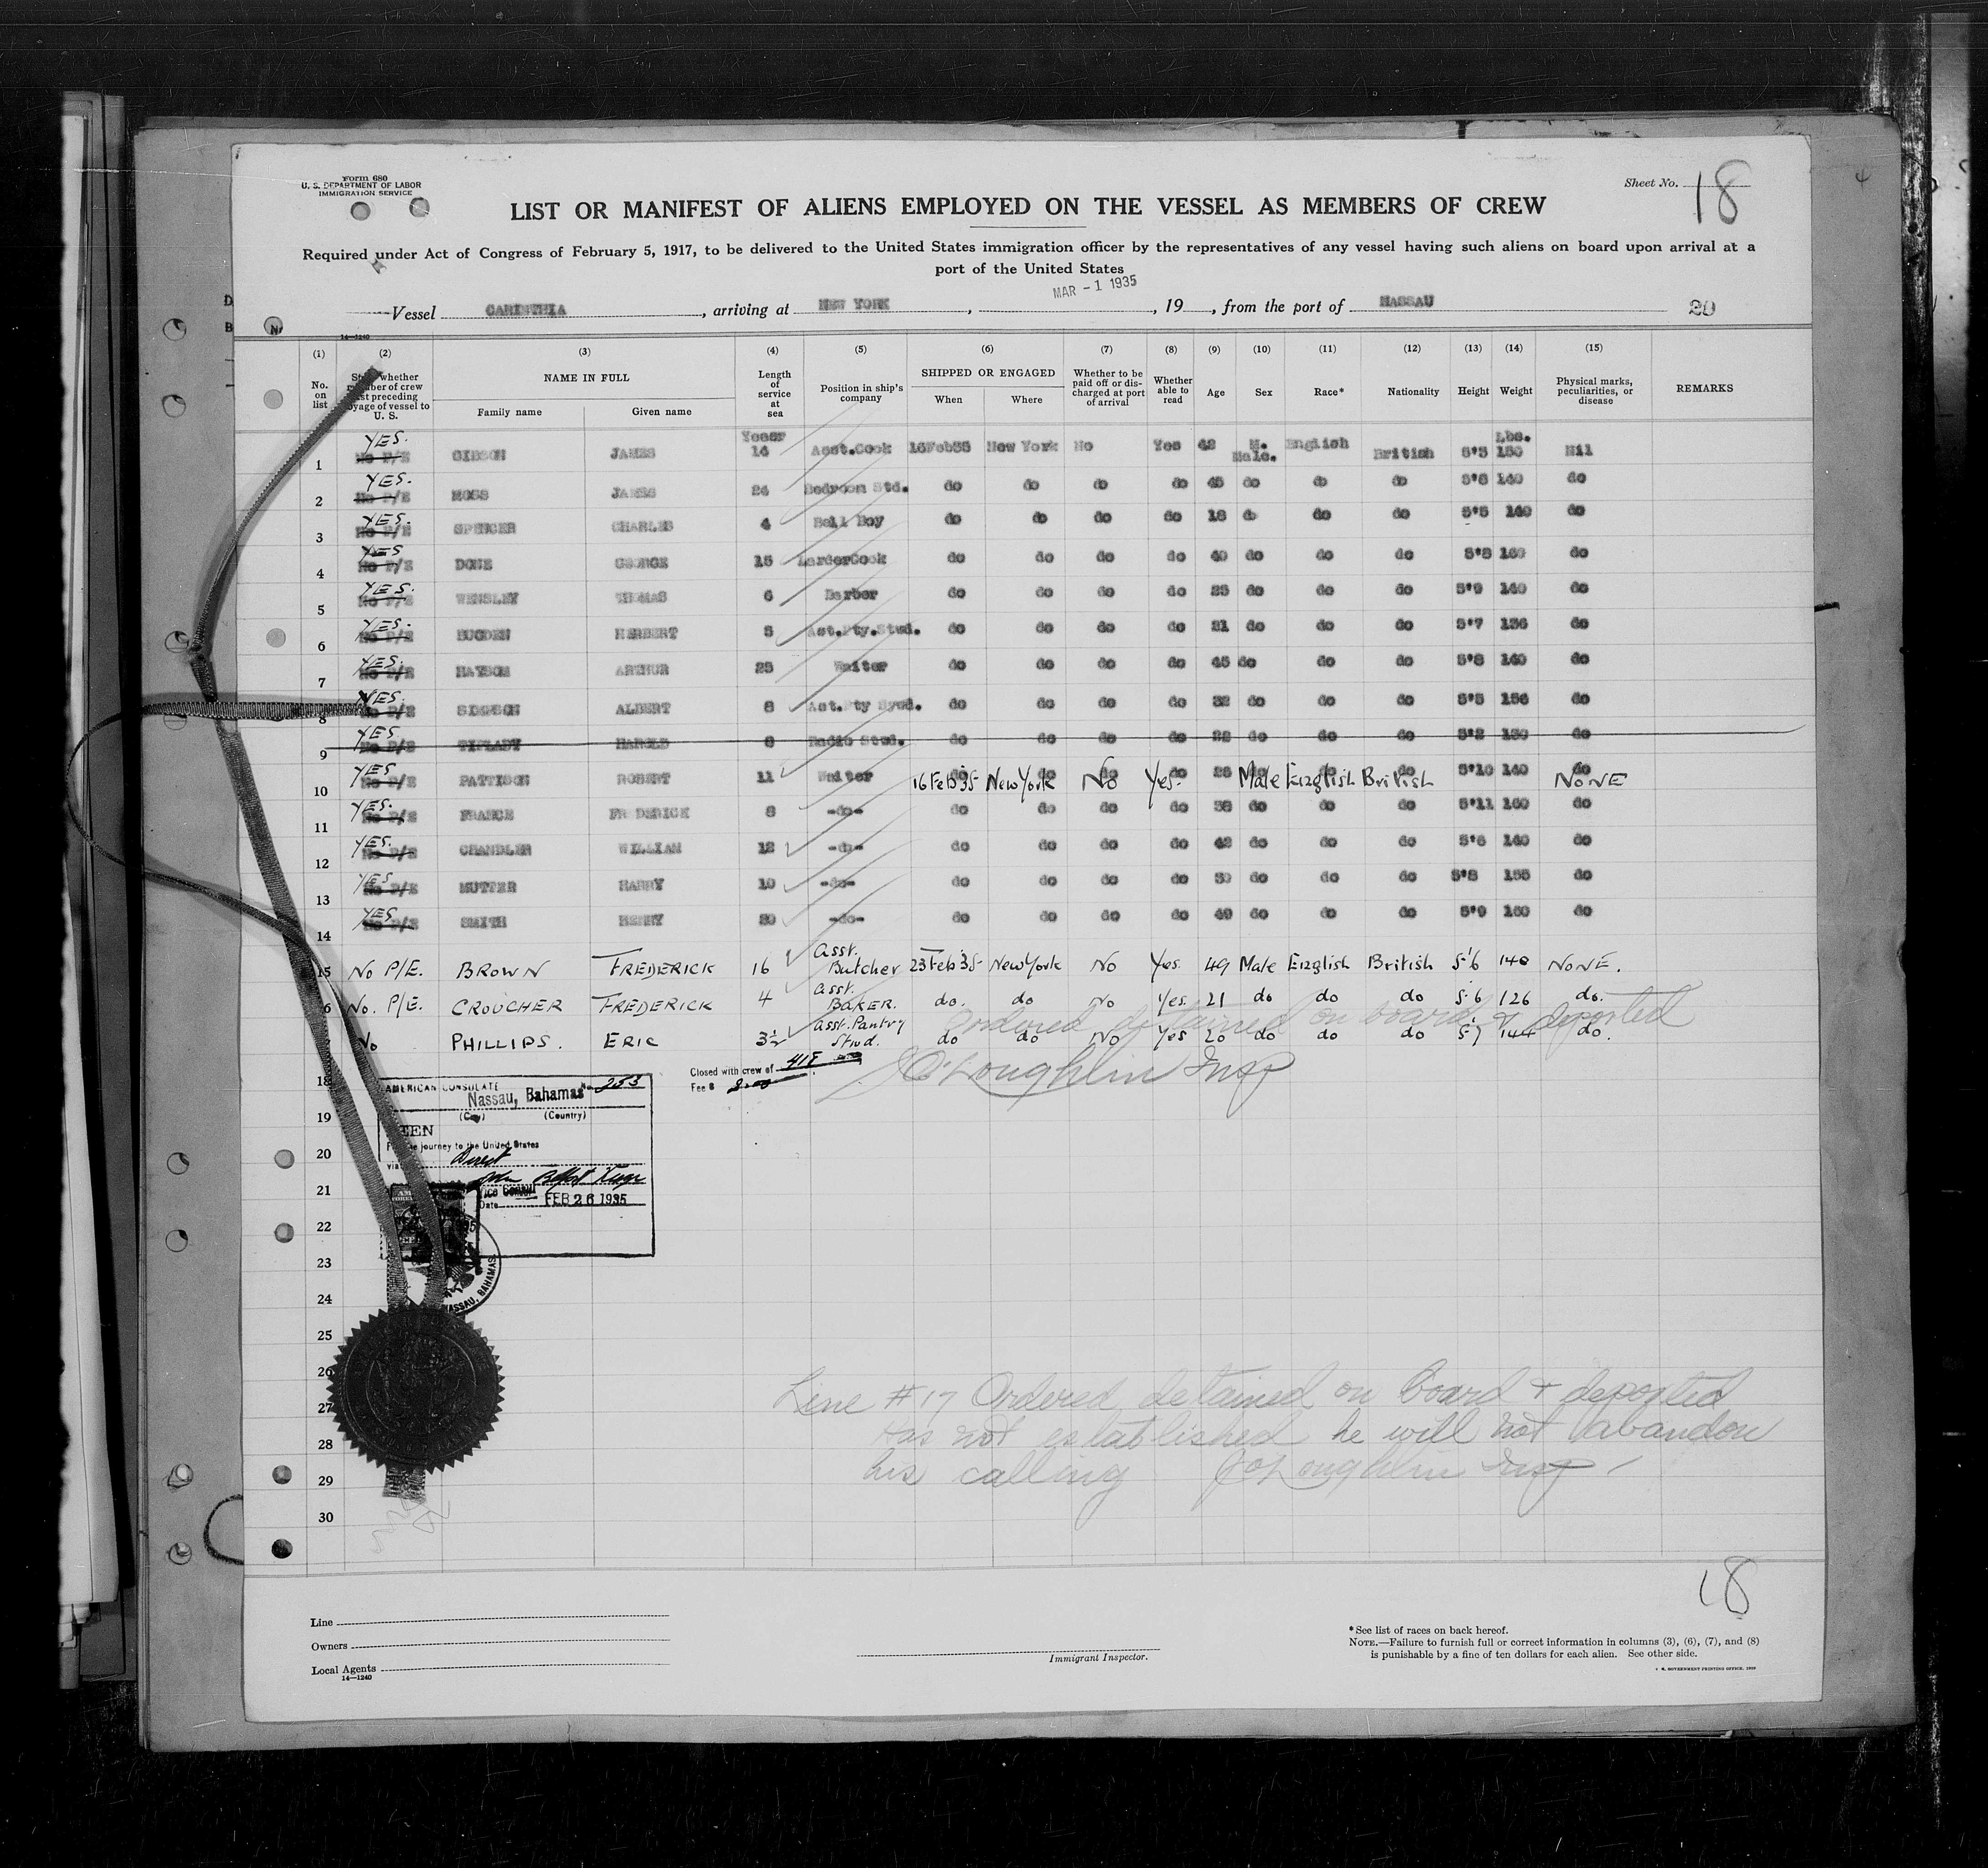 Form 680
U. S. DEPARTMENT OF LABOR
IMMIGRATION SERVICE
Sheet No. 18
LIST OR MANIFEST OF ALIENS EMPLOYED ON THE VESSEL AS MEMBERS OF CREW
Required under Act of Congress of February 5, 1917, to be delivered to the United States immigration officer by the representatives of any vessel having such aliens on board upon arrival at a
port of the United States
MAR - 1 1935
Vessel CARINTHIA, arriving at NEW YORK, , 19 , from the port of NASSAU 20
14—1240
(1) (2) (3) (4) (5) (6) (7) (8) (9) (10) (11) (12) (13) (14) (15)
No. on list
whether member of crew preceding voyage of vessel to U. S.
NAME IN FULL
Family name Given name
Length of service at sea
Position in ship's company
SHIPPED OR ENGAGED
When Where
Whether to be paid off or discharged at port of arrival
Whether able to read
Age Sex Race* Nationality Height Weight
Physical marks, peculiarities, or disease
REMARKS
Years Lbs.
1 YES. No P/E GIBSON JAMES 14 Asst.Cook 16Feb35 New York No Yes 42 M. Male. English British 5'3 150 Nil
2 YES. No P/E MOSS JAMES 24 Bedroom Std. do do do do 45 do do do 5'8 140 do
3 YES. No P/E SPENCER CHARLES 4 Bell Boy do do do do 18 do do do 5'5 140 do
4 YES No P/E DONE GEORGE 15 LarderCook do do do do 40 do do do 5'8 160 do
5 YES. No P/E WENSLEY THOMAS 6 Barber do do do do 25 do do do 5'9 140 do
6 YES. No P/E BUGDEN HERBERT 5 Ast.Pty.Stwd. do do do do 21 do do do 5'7 136 do
7 YES. No P/E HAYSOM ARTHUR 25 Waiter do do do do 45 do do do 5'8 140 do
8 YES. No P/E SIMPSON ALBERT 8 Ast.Pty Stwd. do do do do 32 do do do 5'5 156 do
9 YES No P/E TIPLADY HAROLD 8 Stwd. do do do do 22 do do do 5'2 130 do
10 YES No P/E PATTISON ROBERT 11 Waiter do do do do do do do 5'10 140 do
16 Feb 35 New York No Yes. Male English British NONE
11 YES. No P/E FRANCE FREDERICK 8 -do- do do do do 38 do do do 5'11 160 do
12 YES. No P/E CHANDLER WILLIAM 12 -do- do do do do 42 do do do 5'6 140 do
13 YES No P/E MUTTER HARRY 10 -do- do do do do 30 do do do 5'8 155 do
14 YES. No P/E SMITH HENRY 30 -do- do do do do 49 do do do 5'9 160 do
15 No P/E. BROWN FREDERICK 16 Asst. Butcher 23 Feb 35 New York No Yes. 49 Male English British 5'6 140 NONE.
No. P/E. CROUCHER FREDERICK 4 Asst. BAKER. do. do No Yes. 21 do do do 5.6 126 do.
Ordered detained on board & deported
No PHILLIPS. ERIC 3½ Asst. Pantry Stwd. do do No Yes 20 do do do 5.7 144 do.
O'Loughlin Insp
Closed with crew of 418
Fee $
18
AMERICAN CONSULATE No. 253
Nassau, Bahamas
(City) (Country)
19
20
journey to the United States
via Direct
21
Vice Consul
Date FEB 26 1935
22
23
NASSAU, BAHAMAS
24
25
26
27
28
29
30
Line #17 Ordered detained on board & deported
Has not established he will not abandon
his calling O'Loughlin Insp
18
Line
Owners
Local Agents
14—1240
Immigrant Inspector.
* See list of races on back hereof.
NOTE.—Failure to furnish full or correct information in columns (3), (6), (7), and (8)
is punishable by a fine of ten dollars for each alien. See other side.